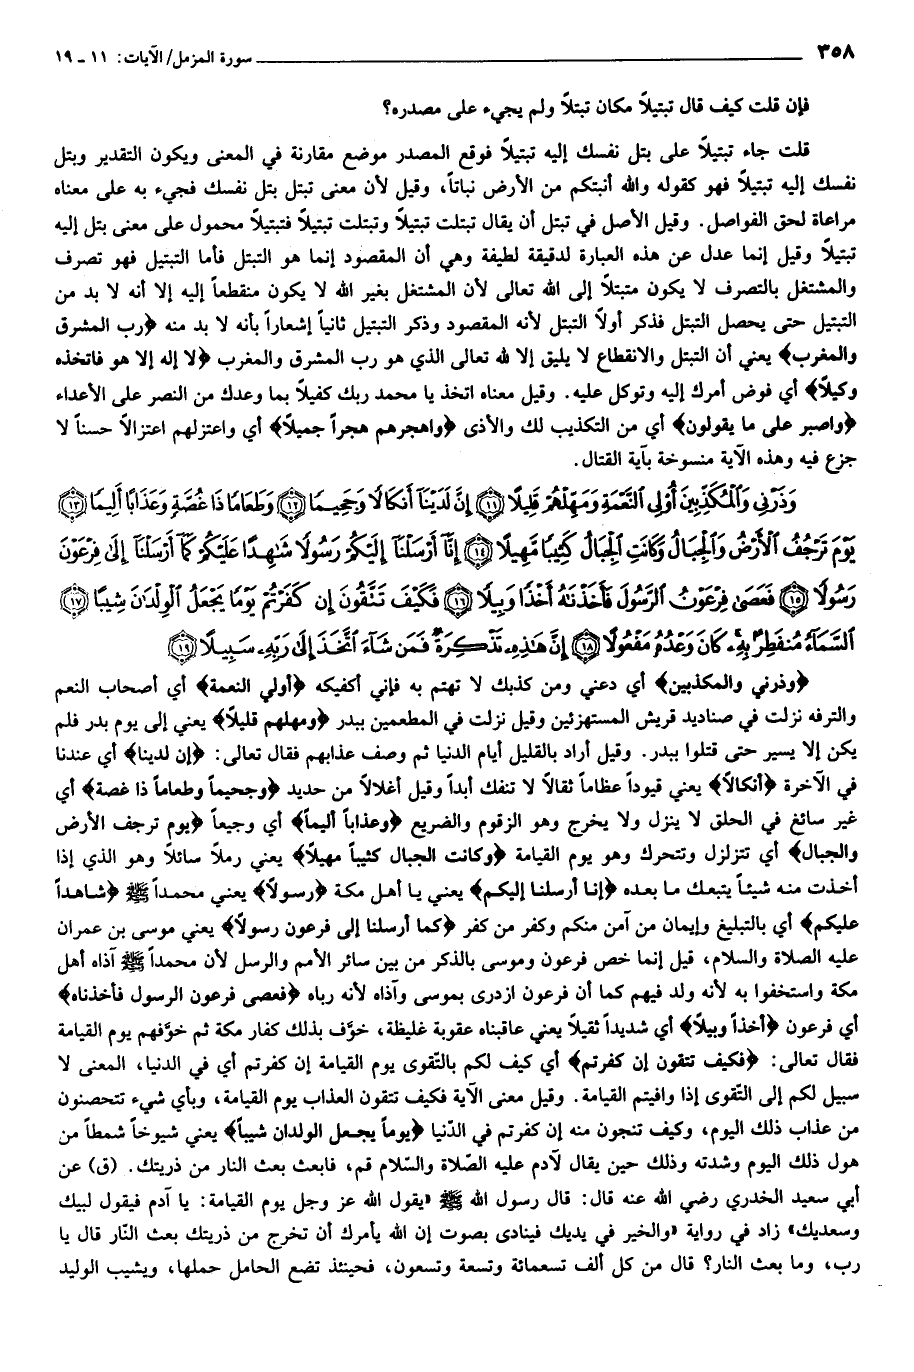 ٣٥٨ سورة المزمل/ الآيات: ١١ ـ ١٩
فإن قلت كيف قال تبتيلاً مكان تبتلاً ولم يجيء على مصدره؟
قلت جاء تبتيلاً على بتل نفسك إليه تبتيلاً فوقع المصدر موضع مقارنة في المعنى ويكون التقدير وبتل
نفسك إليه تبتيلاً فهو كقوله والله أنبتكم من الأرض نباتاً، وقيل لأن معنى تبتل بتل نفسك فجيء به على معناه
مراعاة لحق الفواصل. وقيل الأصل في تبتل أن يقال تبتلت تبتيلاً وتبتلت تبتيلاً فتبتيلاً محمول على معنى بتل إليه
تبتيلاً وقيل إنما عدل عن هذه العبارة لدقيقة لطيفة وهي أن المقصود إنما هو التبتل فأما التبتيل فهو تصرف
والمشتغل بالتصرف لا يكون متبتلاً إلى الله تعالى لأن المشتغل بغير الله لا يكون منقطعاً إليه إلا أنه لا بد من
التبتيل حتى يحصل التبتل فذكر أولاً التبتل لأنه المقصود وذكر التبتيل ثانياً إشعاراً بأنه لا بد منه ﴿رب المشرق
والمغرب﴾ يعني أن التبتل والانقطاع لا يليق إلا لله تعالى الذي هو رب المشرق والمغرب ﴿لا إله إلا هو فاتخذه
وكيلاً﴾ أي فوض أمرك إليه وتوكل عليه. وقيل معناه اتخذ يا محمد ربك كفيلاً بما وعدك من النصر على الأعداء
﴿واصبر على ما يقولون﴾ أي من التكذيب لك والأذى ﴿واهجرهم هجراً جميلاً﴾ أي واعتزلهم اعتزالاً حسناً لا
جزع فيه وهذه الآية منسوخة بآية القتال.
وَذَرْنِي وَالْمُكَذِّبِينَ أُولِي النَّعْمَةِ وَمَهِّلْهُمْ قَلِيلًا ﴿١١﴾ إِنَّ لَدَيْنَا أَنكَالًا وَجَحِيمًا ﴿١٢﴾ وَطَعَامًا ذَا غُصَّةٍ وَعَذَابًا أَلِيمًا ﴿١٣﴾
يَوْمَ تَرْجُفُ الْأَرْضُ وَالْجِبَالُ وَكَانَتِ الْجِبَالُ كَثِيبًا مَّهِيلًا ﴿١٤﴾ إِنَّا أَرْسَلْنَا إِلَيْكُمْ رَسُولًا شَاهِدًا عَلَيْكُمْ كَمَا أَرْسَلْنَا إِلَى فِرْعَوْنَ
رَسُولًا ﴿١٥﴾ فَعَصَى فِرْعَوْنُ الرَّسُولَ فَأَخَذْنَاهُ أَخْذًا وَبِيلًا ﴿١٦﴾ فَكَيْفَ تَتَّقُونَ إِن كَفَرْتُمْ يَوْمًا يَجْعَلُ الْوِلْدَانَ شِيبًا ﴿١٧﴾
السَّمَاءُ مُنفَطِرٌ بِهِ كَانَ وَعْدُهُ مَفْعُولًا ﴿١٨﴾ إِنَّ هَٰذِهِ تَذْكِرَةٌ فَمَن شَاءَ اتَّخَذَ إِلَى رَبِّهِ سَبِيلًا ﴿١٩﴾
﴿وذرني والمكذبين﴾ أي دعني ومن كذبك لا تهتم به فإني أكفيكه ﴿أولي النعمة﴾ أي أصحاب النعم
والترفه نزلت في صناديد قريش المستهزئين وقيل نزلت في المطعمين ببدر ﴿ومهلهم قليلاً﴾ يعني إلى يوم بدر فلم
يكن إلا يسير حتى قتلوا ببدر. وقيل أراد بالقليل أيام الدنيا ثم وصف عذابهم فقال تعالى: ﴿إن لدينا﴾ أي عندنا
في الآخرة ﴿أنكالاً﴾ يعني قيوداً عظاماً ثقالاً لا تنفك أبداً وقيل أغلالاً من حديد ﴿وجحيماً وطعاماً ذا غصة﴾ أي
غير سائغ في الحلق لا ينزل ولا يخرج وهو الزقوم والضريع ﴿وعذاباً أليماً﴾ أي وجيعاً ﴿يوم ترجف الأرض
والجبال﴾ أي تتزلزل وتتحرك وهو يوم القيامة ﴿وكانت الجبال كثيباً مهيلاً﴾ يعني رملاً سائلاً وهو الذي إذا
أخذت منه شيئاً يتبعك ما بعده ﴿إنا أرسلنا إليكم﴾ يعني يا أهل مكة ﴿رسولاً﴾ يعني محمداً ﷺ ﴿شاهداً
عليكم﴾ أي بالتبليغ وإيمان من آمن منكم وكفر من كفر ﴿كما أرسلنا إلى فرعون رسولاً﴾ يعني موسى بن عمران
عليه الصلاة والسلام، قيل إنما خص فرعون وموسى بالذكر من بين سائر الأمم والرسل لأن محمداً ﷺ آذاه أهل
مكة واستخفوا به لأنه ولد فيهم كما أن فرعون ازدرى بموسى وآذاه لأنه رباه ﴿فعصى فرعون الرسول فأخذناه﴾
أي فرعون ﴿أخذاً وبيلاً﴾ أي شديداً ثقيلاً يعني عاقبناه عقوبة غليظة، خوّف بذلك كفار مكة ثم خوّفهم يوم القيامة
فقال تعالى: ﴿فكيف تتقون إن كفرتم﴾ أي كيف لكم بالتّقوى يوم القيامة إن كفرتم أي في الدنيا، المعنى لا
سبيل لكم إلى التّقوى إذا وافيتم القيامة. وقيل معنى الآية فكيف تتقون العذاب يوم القيامة، وبأي شيء تتحصنون
من عذاب ذلك اليوم، وكيف تنجون منه إن كفرتم في الدّنيا ﴿يوماً يجعل الولدان شيباً﴾ يعني شيوخاً شمطاً من
هول ذلك اليوم وشدته وذلك حين يقال لآدم عليه الصّلاة والسّلام قم، فابعث بعث النار من ذريتك. (ق) عن
أبي سعيد الخدري رضي الله عنه قال: قال رسول الله ﷺ «يقول الله عز وجل يوم القيامة: يا آدم فيقول لبيك
وسعديك» زاد في رواية «والخير في يديك فينادى بصوت إن الله يأمرك أن تخرج من ذريتك بعث النّار قال يا
رب، وما بعث النار؟ قال من كل ألف تسعمائة وتسعة وتسعون، فحينئذ تضع الحامل حملها، ويشيب الوليد